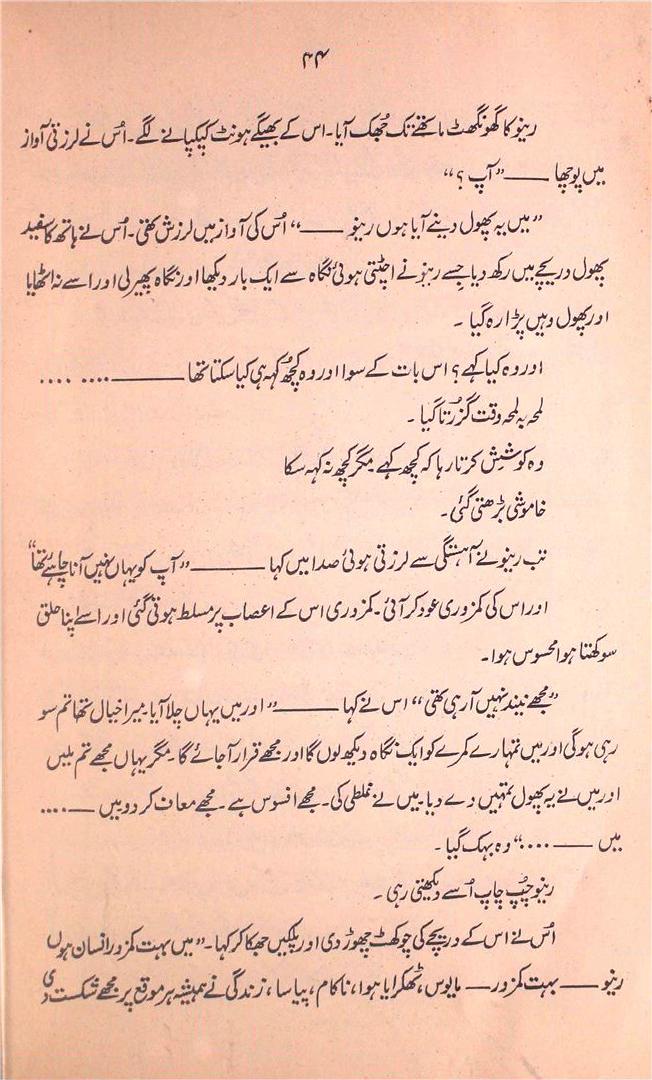 ۴۴
رینو کا گھونگھٹ ماتھے تک جُھک آیا۔ اس کے بھیگے ہونٹ کپکپانے لگے۔ اُس نے لرزتی آواز
میں پوچھا —— ”آپ ؟“
”میں یہ پھول دینے آیا ہوں رینو ——“ اُس کی آواز میں لرزش تھی۔ اُس نے ہاتھ کا سفید
پھول دریچے میں رکھ دیا جسے رینو نے اچٹتی ہوئی نگاہ سے ایک بار دیکھا اور نگاہ پھیر لی اور اسے نہ اٹھایا
اور پھول وہیں پڑا رہ گیا ۔
اور وہ کیا کہے؟ اس بات کے سوا اور وہ کچھ کہہ ہی کیا سکتا تھا —— .... ....
لمحہ بہ لمحہ وقت گزرتا گیا ۔
وہ کوشش کرتا رہا کہ کچھ کہے مگر کچھ نہ کہہ سکا
خاموشی بڑھتی گئی ۔
تب رینو نے آہستگی سے لرزتی ہوئی صدا میں کہا —— ”آپ کو یہاں نہیں آنا چاہئے تھا“
اور اس کی کمزوری عود کر آئی۔ کمزوری اس کے اعصاب پر مسلط ہوتی گئی اور اسے اپنا حلق
سوکھتا ہوا محسوس ہوا۔
”مجھے نیند نہیں آ رہی تھی“ اس نے کہا —— ”اور میں یہاں چلا آیا۔ میرا خیال تھا تم سو
رہی ہوگی اور میں تمہارے کمرے کو ایک نگاہ دیکھ لوں گا اور مجھے قرار آ جائے گا۔ مگر یہاں مجھے تم ملیں
اور میں نے یہ پھول تمہیں دے دیا۔ میں نے غلطی کی۔ مجھے افسوس ہے۔ مجھے معاف کر دو میں —— ....
میں —— ....“ وہ بہک گیا ۔
رینو چُپ چاپ اُسے دیکھتی رہی ۔
اُس نے اس کے دریچے کی چوکھٹ چھوڑ دی اور پلکیں جھکا کر کہا۔ ”میں بہت کمزور انسان ہوں
رینو —— بہت کمزور — مایوس، ٹھکرایا ہوا، ناکام، پیاسا، زندگی نے ہمیشہ ہر موقع پر مجھے شکست دی